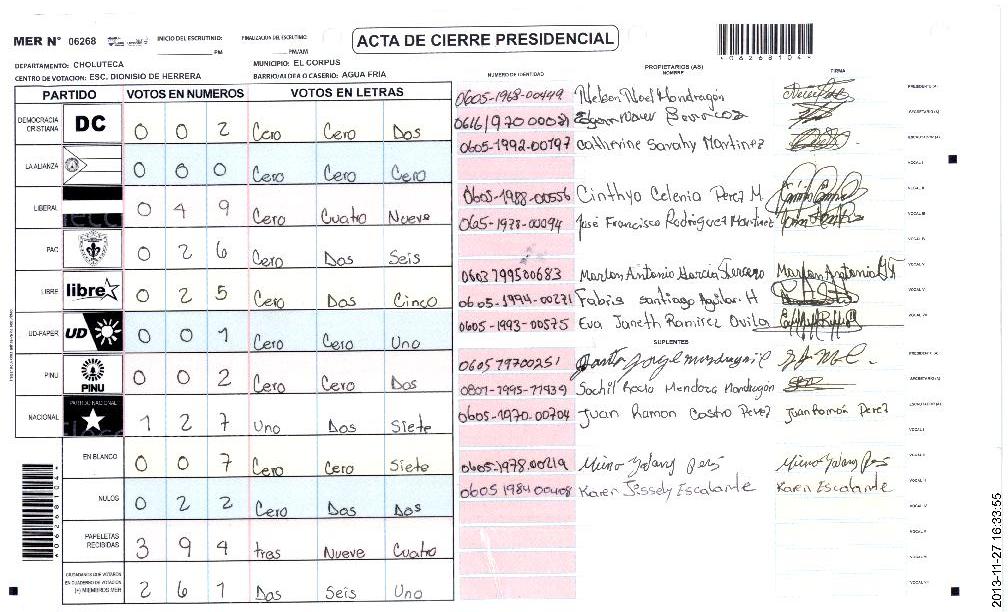 MER N° 06268
INICIO DEL ESCRUTINIO: PM
FINALIZACION DEL ESCRUTINIO: PM/AM
ACTA DE CIERRE PRESIDENCIAL
0 6 2 6 8 1 0 4
DEPARTAMENTO: CHOLUTECA
MUNICIPIO: EL CORPUS
CENTRO DE VOTACION: ESC. DIONISIO DE HERRERA
BARRIO/ALDEA O CASERIO: AGUA FRIA
PARTIDO VOTOS EN NUMEROS VOTOS EN LETRAS
DEMOCRACIA CRISTIANA DC 0 0 2 Cero Cero Dos
LA ALIANZA 0 0 0 Cero Cero Cero
LIBERAL 0 4 9 Cero Cuatro Nueve
PAC 0 2 6 Cero Dos Seis
LIBRE libre 0 2 5 Cero Dos Cinco
UD-FAPER UD 0 0 1 Cero Cero Uno
PINU PINU 0 0 2 Cero Cero Dos
NACIONAL PARTIDO NACIONAL 1 2 7 Uno Dos Siete
EN BLANCO 0 0 7 Cero Cero Siete
NULOS 0 2 2 Cero Dos Dos
PAPELETAS RECIBIDAS 3 9 4 tres Nueve Cuatro
CIUDADANOS QUE VOTARON EN CUADERNO DE VOTACION (+) MIEMBROS MER 2 6 1 Dos Seis Uno
NUMERO DE IDENTIDAD
PROPIETARIOS (AS)
NOMBRE
FIRMA
0605-1968-00449 Nelson Noel Mondragon PRESIDENTE (A)
SECRETARIO (A)
0605-1992-00797 Catherine Sarahy Martinez ESCRUTADOR (A)
VOCAL I
0605-1988-00556 Cinthya Celenia Perez M. VOCAL II
065-1978-00094 José Francisco Rodriguez Martinez VOCAL III
VOCAL IV
0603799500683 Marlon Antonio Garcia VOCAL V
0605-1994-00271 Fabis Santiago Aguilar H
0605-1993-00575 Eva Janeth Ramirez Avila
SUPLENTES
060579700251 PRESIDENTE (A)
0801-1995-77939 Sochil Rocio Mendoza Mondragón SECRETARIO (A)
0605-1970-00704 Juan Ramon Castro Perez Juan Ramón Perez ESCRUTADOR (A)
VOCAL I
0605-1978-00219
0605 1984 00408 Karen Jissely Escalante Karen Escalante
2013-11-27 16:33:55